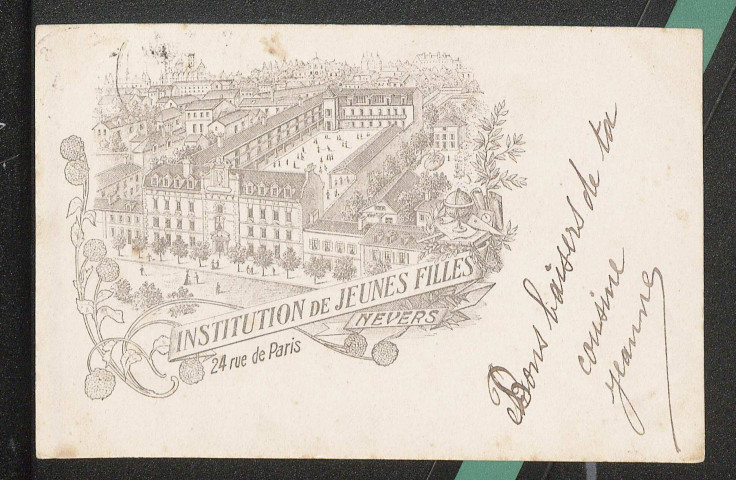 INSTITUTION DE JEUNES FILLES
NEVERS
24 rue de Paris
Bons baisers de ta
cousine
Jeanne